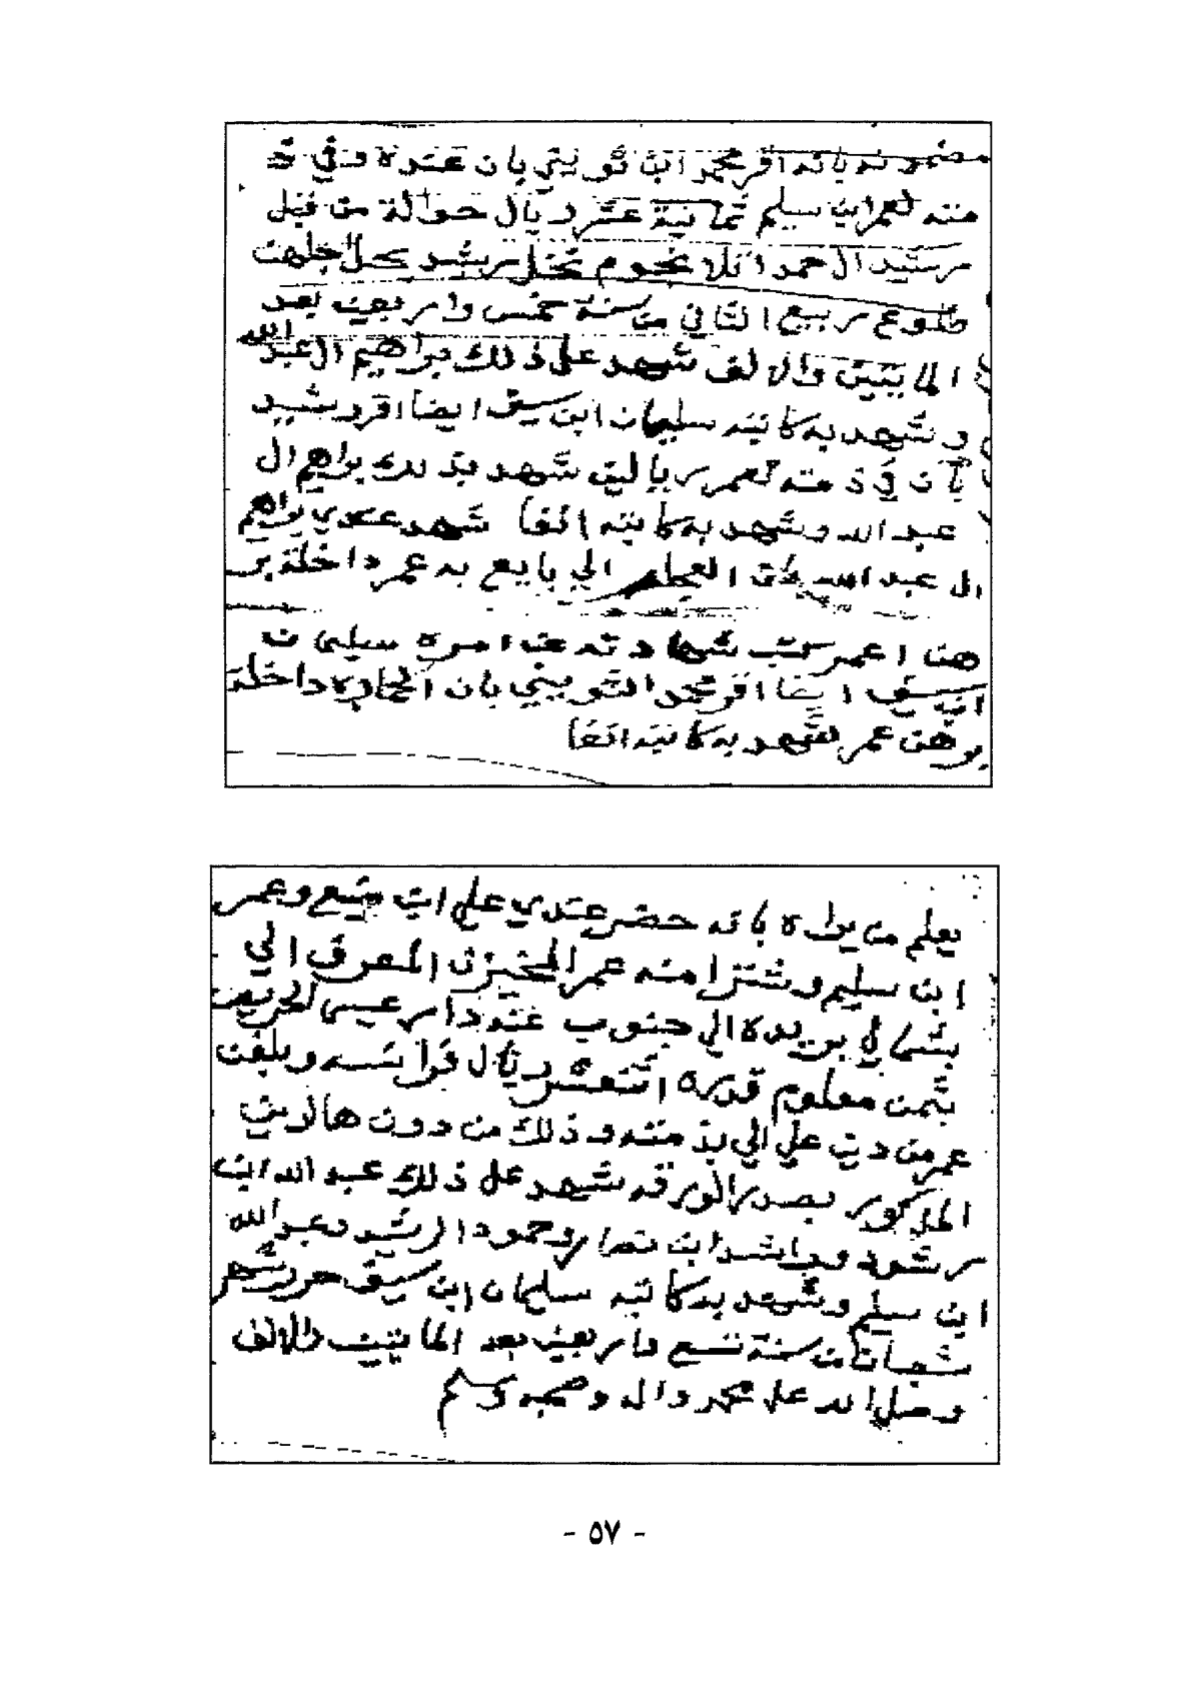 مضمونه بانه اقر محمد ابن ثويني بان عنده وفي ذ
منه لعمر ابن سليم ثمانية عشر ريال حوالة من قبل
رشيد ال حمد ثلاثة نجوم كل اجلهن
طلوع ربيع الثاني من سنة خمس واربعين بعد
الماتين والالف شهد على ذلك براهيم ال عبدالله
وشهد به كاتبه سليمان ابن سيف ايضا اقر رشيد
بان في ذمته لعمر ريالين شهد بذلك براهيم ال
عبدالله وشهد به كاتبه انفا شهد عندي براهيم
ال عبدالله بان الي بايع به عمر داخلة بر
هن اعمر كتب شهادته عن امره سليمان
ابن سيف ايضا اقر محمد الثويني بان داخلة
برهن عمر شهد به كاتبه انفا
يعلم من يراه بانه حضر عندي علي ابن وعمر
ابن سليم وشترا منه عمر المعرف الي
بشمالي بريده الي جنوب عنه دار عيسى
بثمن معلوم قدره اثنعشر ريال فرانسه وبلغن
عمر من دين علي الي بذمته وذلك من دون هالدين
المذكور بصدر الورقه شهد على ذلك عبدالله ابن
رشود وراشد ابن وحمود الرشيد وعبدالله
ابن سليم وشهد به كاتبه سليمان ابن سيف حرر شهر
شعبان من سنة تسع واربعين بعد الماتين والالف
وصلى الله على محمد واله وصحبه وسلم
- ٥٧ -